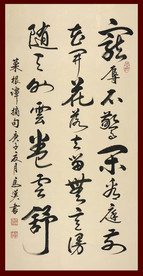 寵辱不驚閑看庭前
花開花落去留無意漫
隨天外雲卷雲舒
菜根譚摘句庚子夏月書